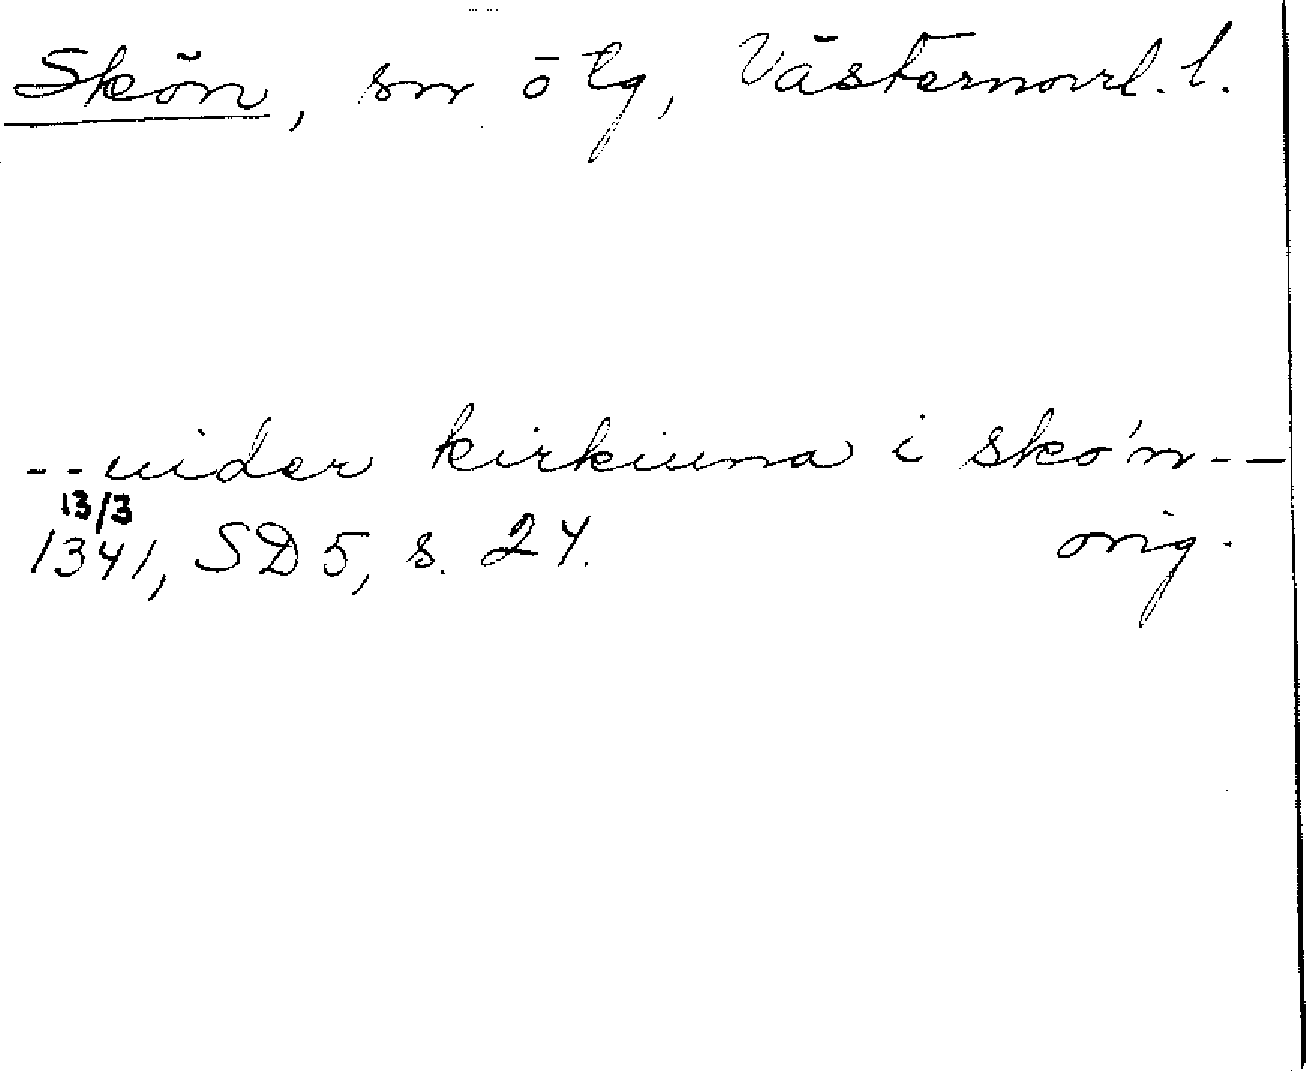 Skön, sn o tg, Västernorrl. l.
-- uider kirkiuna i skön --
13/3
1341, SD 5, s. 24. orig.